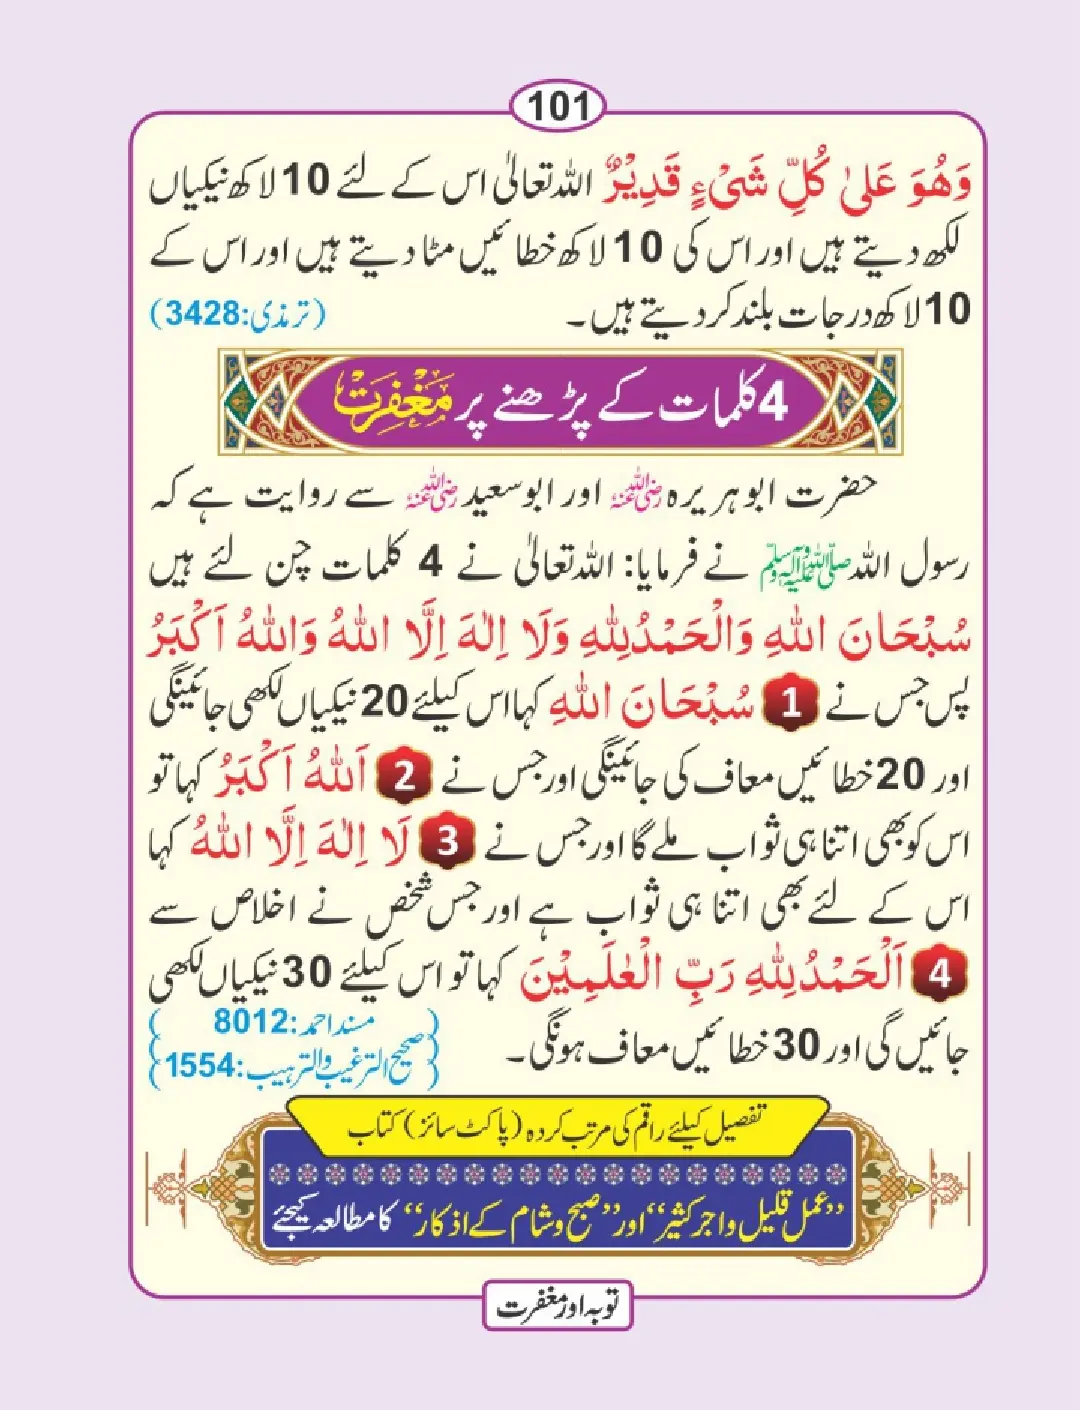 101
وَهُوَ عَلىٰ كُلِّ شَیْءٍ قَدِيْرٌ اللہ تعالیٰ اس کے لئے 10 لاکھ نیکیاں
لکھ دیتے ہیں اور اس کی 10 لاکھ خطائیں مٹا دیتے ہیں اور اس کے
10 لاکھ درجات بلند کر دیتے ہیں۔ (ترمذی:3428)
4 کلمات کے پڑھنے پر مَغْفِرَتْ
حضرت ابوہریرہ رضی اللہ عنہ اور ابوسعید رضی اللہ عنہ سے روایت ہے کہ
رسول اللہ صلی اللہ علیہ وآلہ وسلم نے فرمایا: اللہ تعالیٰ نے 4 کلمات چن لئے ہیں
سُبْحَانَ اللهِ وَالْحَمْدُلِلّٰهِ وَلَا اِلٰهَ اِلَّا اللهُ وَاللهُ اَكْبَرُ
پس جس نے 1 سُبْحَانَ اللهِ کہا اس کیلئے 20 نیکیاں لکھی جائینگی
اور 20 خطائیں معاف کی جائینگی اور جس نے 2 اَللهُ اَكْبَرُ کہا تو
اس کو بھی اتنا ہی ثواب ملے گا اور جس نے 3 لَا اِلٰهَ اِلَّا اللهُ کہا
اس کے لئے بھی اتنا ہی ثواب ہے اور جس شخص نے اخلاص سے
4 اَلْحَمْدُلِلّٰهِ رَبِّ الْعٰلَمِيْنَ کہا تو اس کیلئے 30 نیکیاں لکھی
جائیں گی اور 30 خطائیں معاف ہونگی۔
(مسند احمد:8012
صحیح الترغیب والترہیب:1554)
تفصیل کیلئے راقم کی مرتب کردہ (پاکٹ سائز) کتاب
”عمل قلیل واجر کثیر“ اور ”صبح و شام کے اذکار“ کا مطالعہ کیجئے
توبہ اور مغفرت